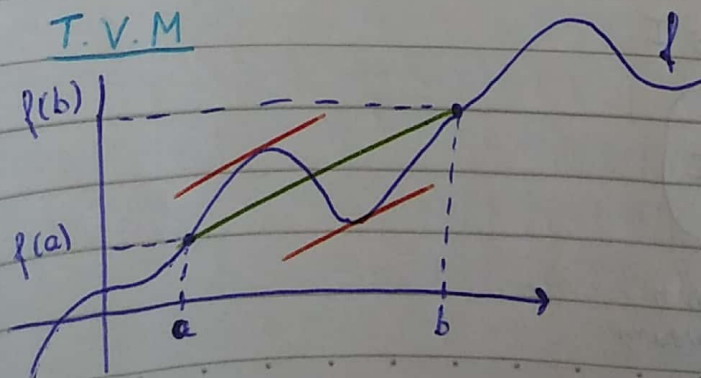 T.V.M
f
f(b)
f(a)
a b